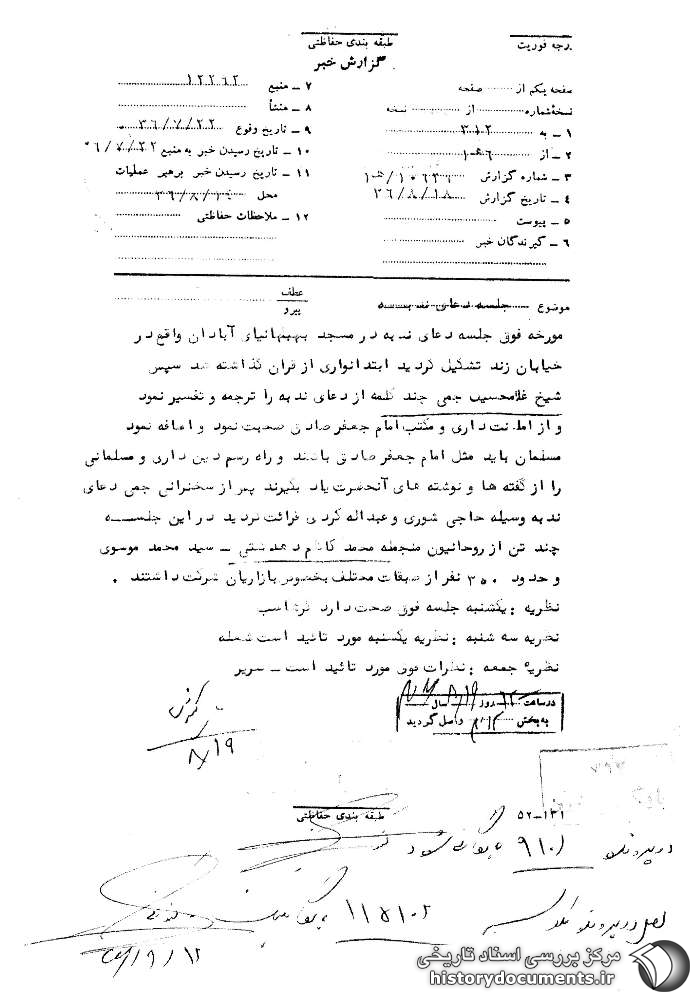 طبقه بندی حفاظتی
درجه فوریت
گزارش خبر
صفحه یکم از صفحه
نسخهٔ شماره از نسخه
۱ – به ۳۱۲
۲ – از ۱۰۶
۳ – شماره گزارش
۴ – تاریخ گزارش ۳۶/۸/۱۸
۵ – پیوست
۶ – گیرندگان خبر
۷ – منبع ۱۲۲۶۲
۸ – منشأ
۹ – تاریخ وقوع ۳۶/۷/۲۲
۱۰ – تاریخ رسیدن خبر به منبع ۶/۷/۲۲
۱۱ – تاریخ رسیدن خبر برهبر عملیات
محل
۱۲ – ملاحظات حفاظتی
موضوع جلسه دعای ندبه
عطف
پیرو
مورخه فوق جلسه دعای ندبه در مسجد بهبهانیای آبادان واقع در
خیابان زند تشکیل گردید ابتدا نواری از قران گذاشته شد سپس
شیخ غلامحسین جمی چند کلمه از دعای ندبه را ترجمه و تفسیر نمود
و از امانت داری و مکتب امام جعفر صادق صحبت نمود و اضافه نمود
مسلمان باید مثل امام جعفر صادق باشند و راه رسم دین داری و مسلمانی
را از گفته ها و نوشته های آنحضرت یاد بگیرند پس از سخنرانی جمی دعای
ندبه به وسیله حاجی شوری و عبداله کردی قرائت گردید در این جلسه
چند تن از روحانیون منجمله محمد کاظم دهدشتی – سید محمد موسوی
و حدود ۳۰۰ نفر از طبقات مختلف بخصوص بازاریان شرکت داشتند .
نظریه : یکشنبه جلسه فوق صحت دارد
نظریه سه شنبه : نظریه یکشنبه مورد تائید است شعله
نظریهٔ جمعه : نظرات فوق مورد تائید است – سریر
در ساعت روز سال
به بخش ۳۱۲ واصل گردید
۸/۱۹
طبقه بندی حفاظتی
۵۲–۱۳۱
در پرونده ۹۱۰۱ بایگانی شود
اصل در پرونده کلاسه ۱۱۵۱۰۲
مرکز بررسی اسناد تاریخی
historydocuments.ir